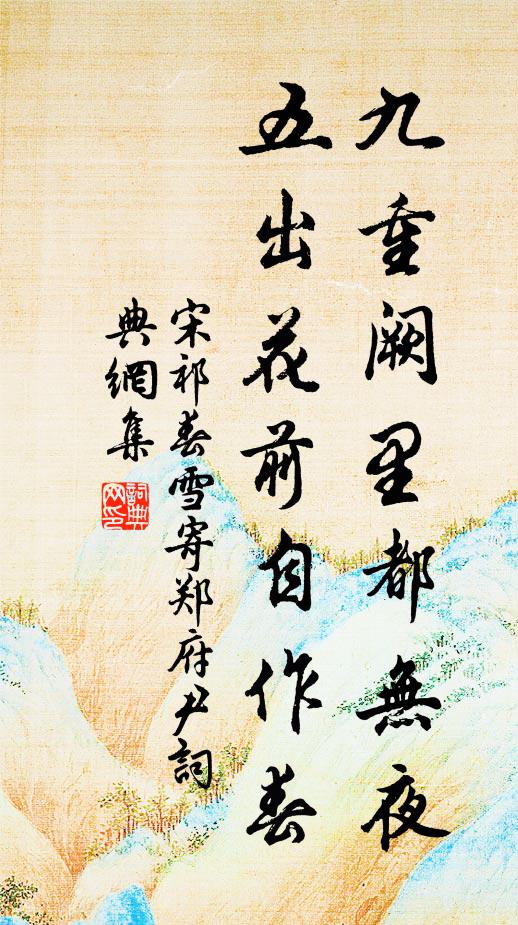 九重阙里都無夜
五出花前自作春
宋祁春雪寄郑府尹詞
典網集
詞典
网印